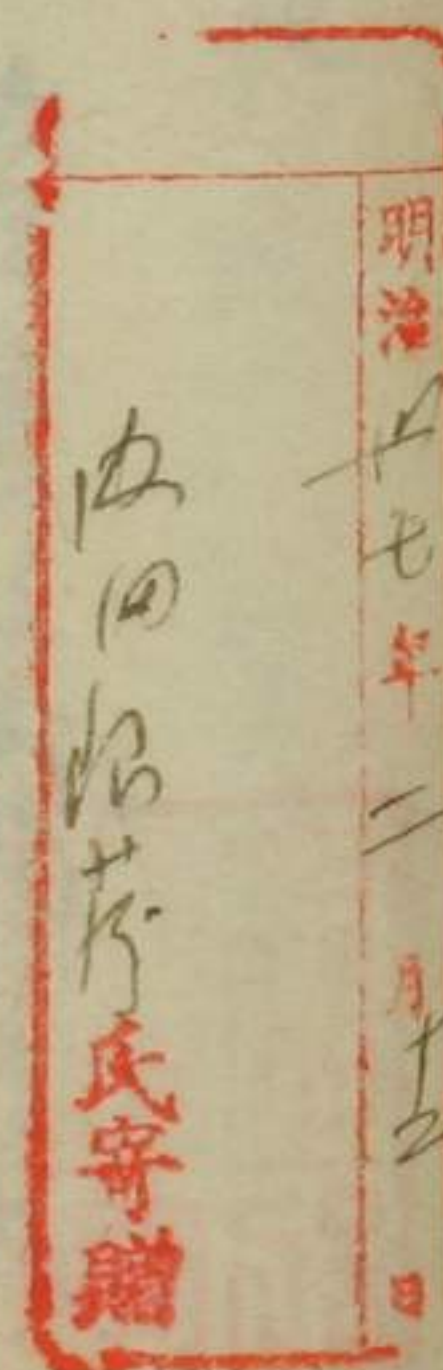 明治廿七年二月十五日
内田銀蔵氏寄贈